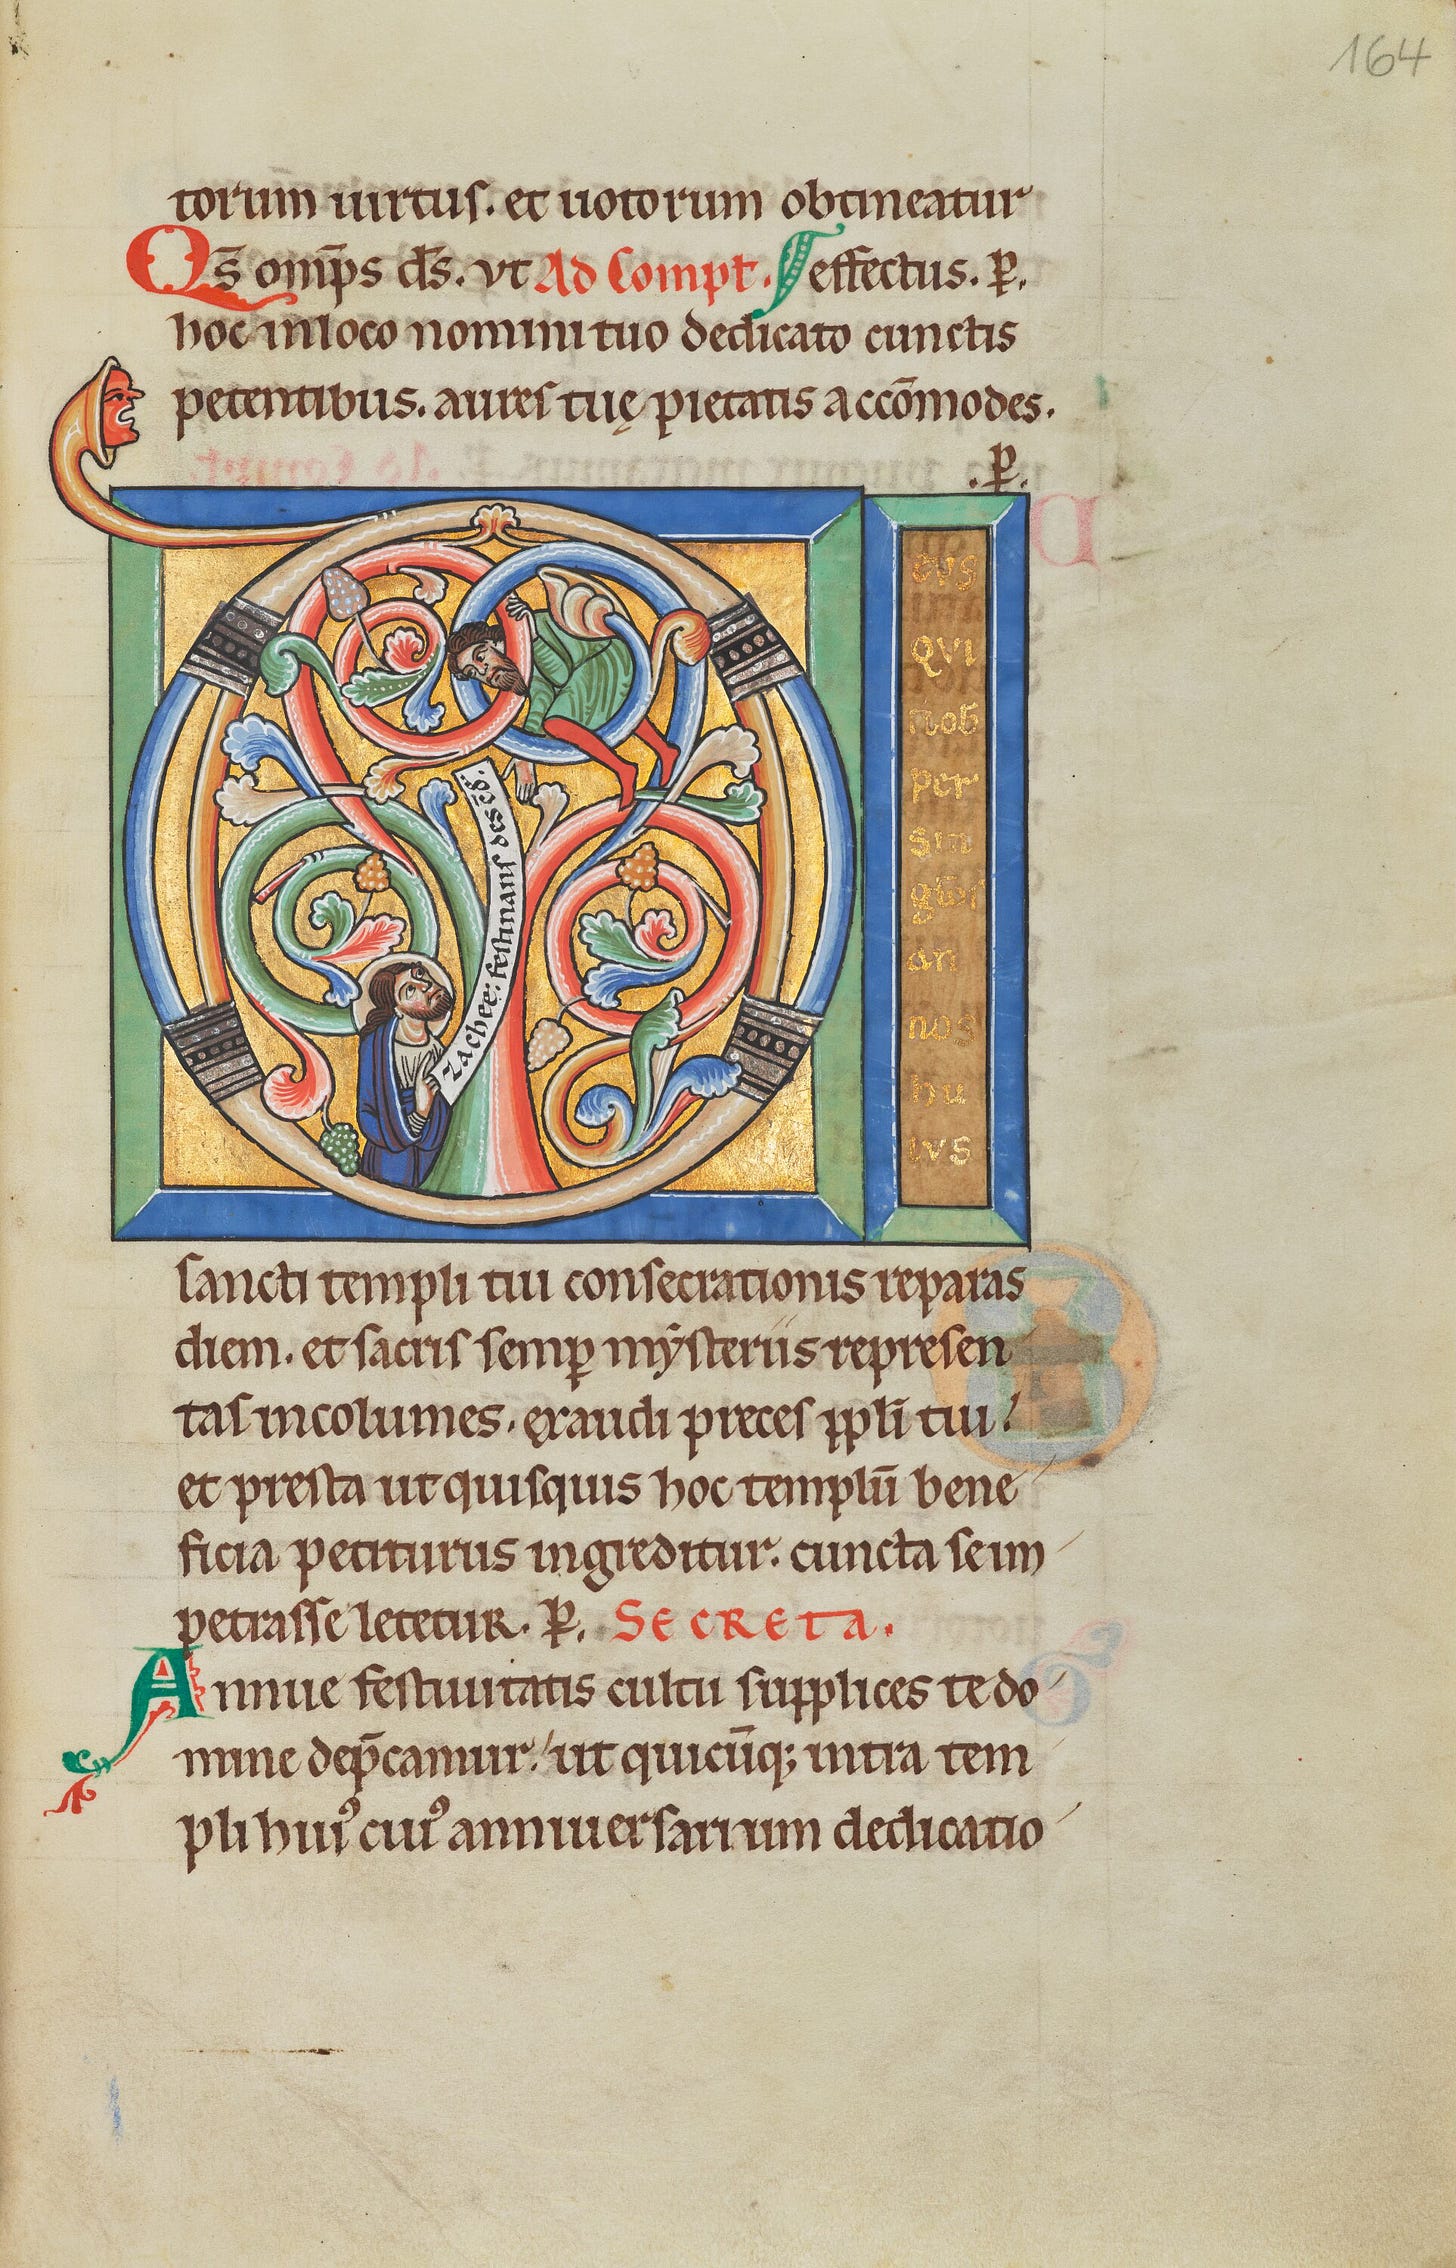 164
torum uirtus. et uotorum obtineatur
Qs̄ omp̄s ds̄. vt Ad Compt̄. effectus. P̄.
hoc in loco nomini tuo dedicato cunctis
petentibus. aures tuę pietatis accōmodes.
.P̄.
Zachee: festinans desc̄d̄.
evs
qvi
nob
per
sin
gl̄os
an
nos
hu
ivs
sancti templi tui consecrationis reparas
diem. et sacris semꝑ mẏsteriis represen
tas incolumes. exaudi preces pp̄li tui!
et presta ut quisquis hoc templū bene
ficia petiturus ingreditur. cuncta se im
petrasse letetur. P̄. Secreta.
Annue festiuitatis cultu supplices te do
mine dep̄camur! ut quicūq; intra tem
pli huiꝰ cuiꝰ anniuersarium dedicatio